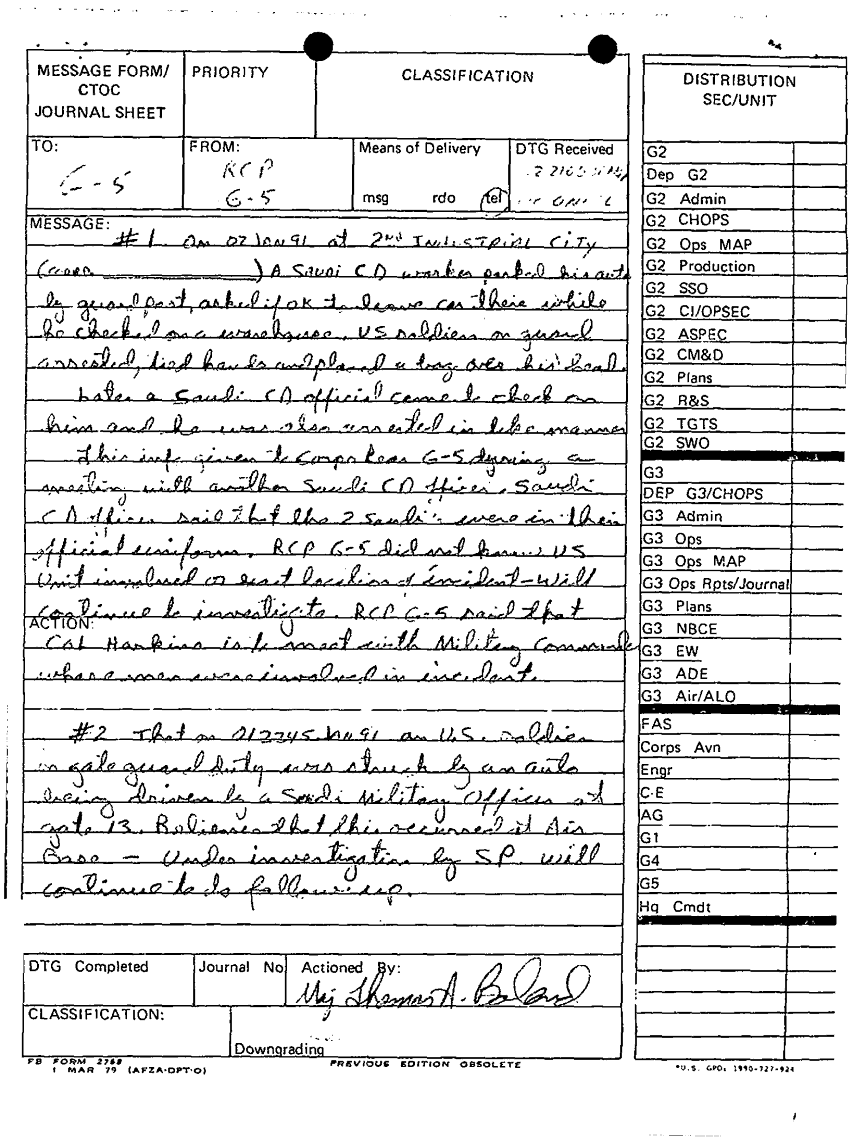 MESSAGE FORM/
CTOC
JOURNAL SHEET
PRIORITY
CLASSIFICATION
TO:
G-5
FROM:
RCP
G-5
Means of Delivery
msg rdo tel
DTG Received
MESSAGE:
#1. On 02 Jan 91 at 2nd INDUSTRIAL CITY
( ) A Saudi CD worker parked his auto
by guard post, asked if ok to leave car there while
he checked on a warehouse. US soldiers on guard
arrested, tied hands and placed a bag over his head.
Later a Saudi CD official came to check on
him and he was also arrested in like manner
This info given to Corps Rear G-5 during a
meeting with another Saudi CD officer. Saudi
CD officer said that the 2 Saudi's were in their
official uniform. RCP G-5 did not know US
Unit involved or exact location of incident - Will
continue to investigate. RCP G-5 said that
ACTION:
Col Hankins is to meet with Military
where men were involved in incident.
#2 That on 012245 91 an U.S. soldier
on gate guard duty was struck by an auto
being driven by a Saudi Military Officer at
gate 13. Believes that this occurred at Air
Base - Under investigation by SP. will
continue to do follow-up.
DTG Completed
Journal No
Actioned By:
Maj Thomas A. Boland
CLASSIFICATION:
Downgrading
FB FORM 2768
1 MAR 79 (AFZA-DPT-O)
PREVIOUS EDITION OBSOLETE
DISTRIBUTION
SEC/UNIT
G2
Dep G2
G2 Admin
G2 CHOPS
G2 Ops MAP
G2 Production
G2 SSO
G2 CI/OPSEC
G2 ASPEC
G2 CM&D
G2 Plans
G2 R&S
G2 TGTS
G2 SWO
G3
DEP G3/CHOPS
G3 Admin
G3 Ops
G3 Ops MAP
G3 Ops Rpts/Journal
G3 Plans
G3 NBCE
G3 EW
G3 ADE
G3 Air/ALO
FAS
Corps Avn
Engr
C-E
AG
G1
G4
G5
Hq Cmdt
*U.S. GPO: 1990-727-924